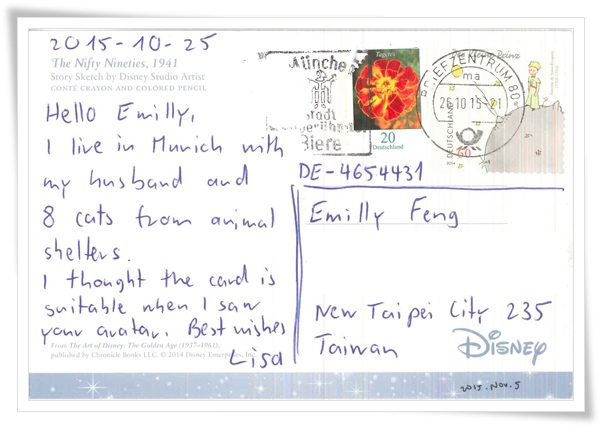 2015-10-25
The Nifty Nineties, 1941
Story Sketch by Disney Studio Artist
CONTÉ CRAYON AND COLORED PENCIL
Hello Emilly,
I live in Munich with
my husband and
8 cats from animal
shelters.
I thought the card is
suitable when I saw
your avatar. Best wishes
Lisa
From The Art of Disney: The Golden Age (1937–1961),
published by Chronicle Books LLC. © 2014 Disney Enterprises, Inc.
München
Stadt
Biere
Tagetes
20
Deutschland
Der kleine Prinz
BRIEFZENTRUM 80
ma
26.10.15-21
DEUTSCHLAND
60
DE-4654431
Emilly Feng
New Taipei City 235
Taiwan
Disney
2015.Nov.5